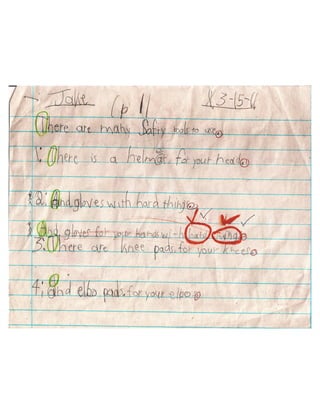 Jake (p 1) 3-15-11
There are many Safty tools to use.
1. There is a helmat. for your head.
2. And gloves with hard things.
And gloves for your hands with
3. There are knee pads. for your knees.
4. And elbo pads. for your elbo.